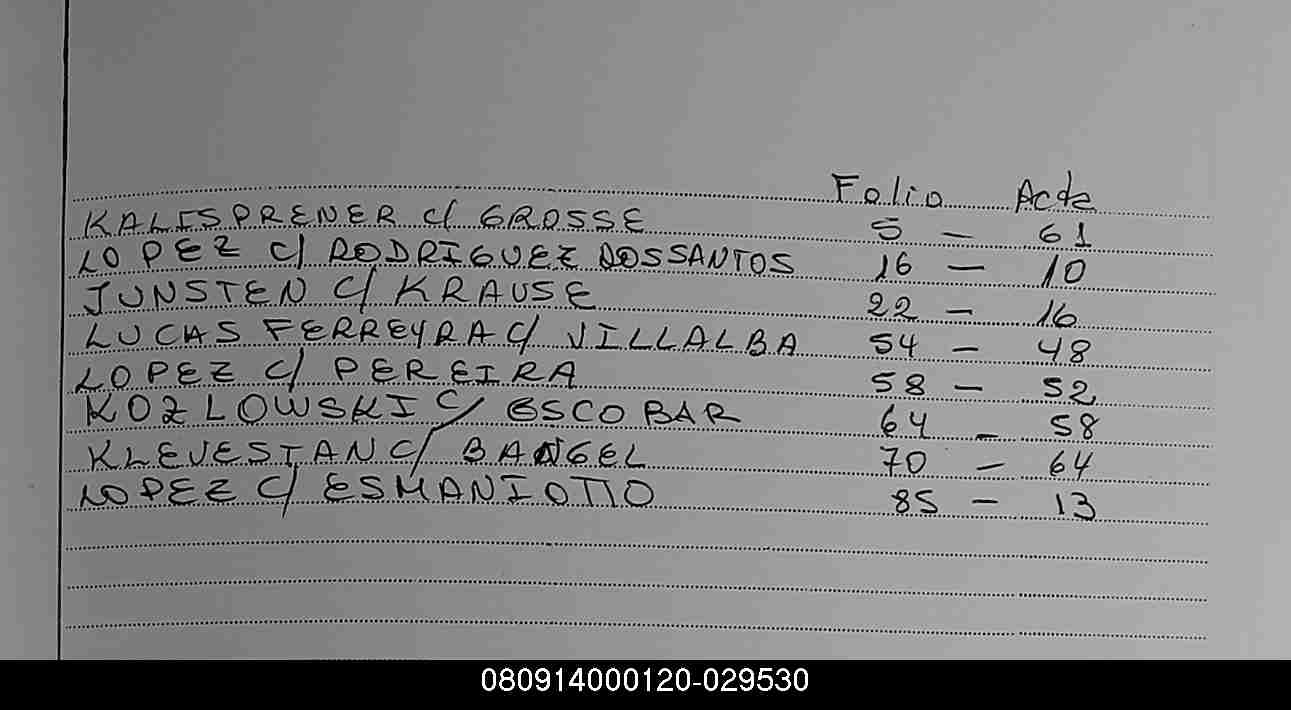 Folio Acta
KALESPRENER C/ GROSSE 5 - 61
LOPEZ C/ RODRIGUEZ DOSSANTOS 16 - 10
JUNSTEN C/ KRAUSE 22 - 16
LUCAS FERREYRA C/ VILLALBA 54 - 48
LOPEZ C/ PEREIRA 58 - 52
KOZLOWSKI C/ ESCOBAR 64 - 58
KLEVESTAN C/ BANGEL 70 - 64
LOPEZ C/ ESMANIOTTO 85 - 13
080914000120-029530